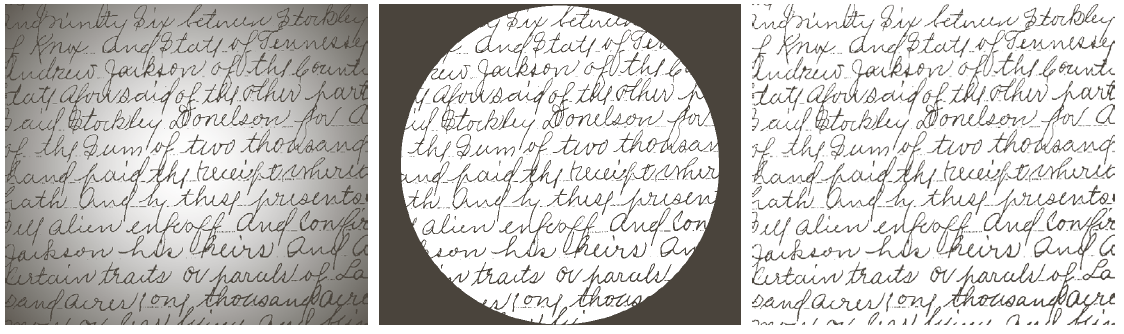 and ninety Six between Stockley
f Knox and State of Tennessee
Andrew Jackson of the Count
tate aforesaid of the other part
Said Stockley Donelson for a
of the Sum of two thousand
hand paid the receipt wheric
hath And by these presents
ell alien enfeoff And Confir
Jackson his heirs And a
Certain traits or parcels of La
sand acres long thousand acre
ty Six between
and State of Ten
rew Jackson of the C
y aforesaid of the other p
id Stockley Donelson for
the Sum of two thousan
and paid the receipt wheri
ath And by these presen
alien enfeoff And Conf
kson his heirs An
in traits or parcels
long thous
and ninety Six between Stockley
f Knox and State of Tennessee
Andrew Jackson of the Count
tate aforesaid of the other part
Said Stockley Donelson for a
of the Sum of two thousand
hand paid the receipt wheric
hath And by these presents
ell alien enfeoff And Confir
Jackson his heirs And a
Certain traits or parcels of La
sand acres long thousand acre